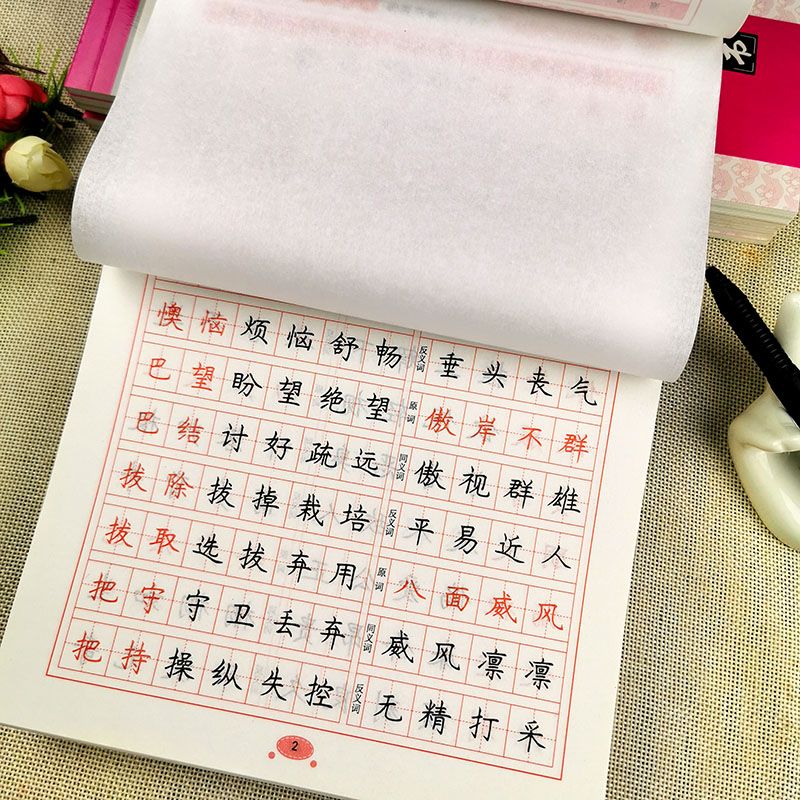 懊恼烦恼舒畅
巴望盼望绝望
巴结讨好疏远
拔除拔掉栽培
拔取选拔弃用
把守守卫丢弃
把持操纵失控
反义词 垂头丧气
原词 傲岸不群
同义词 傲视群雄
反义词 平易近人
原词 八面威风
同义词 威风凛凛
反义词 无精打采
2